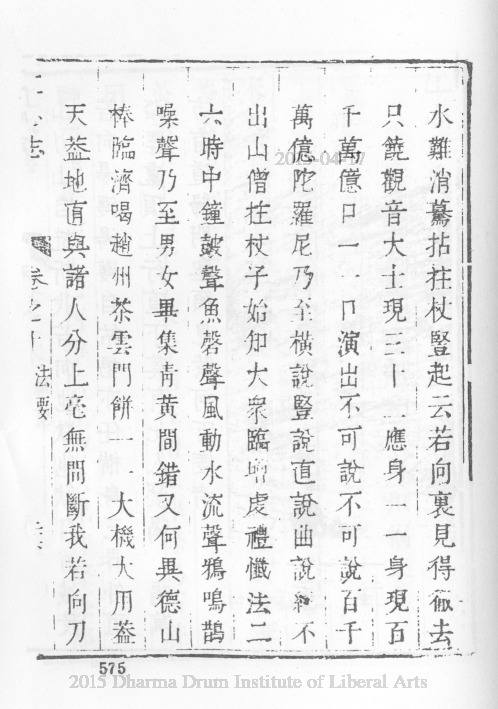 水難消驀拈拄杖豎起云若向裏見得徹去
只饒觀音大士現三十二應身一一身現百
千萬億口一一口演出不可說不可說百千
萬億陀羅尼乃至橫說豎說直說曲說總不
出山僧拄杖子始知大衆臨壇處禮懺法二
六時中鐘皷聲魚磬聲風動水流聲鴉鳴鵲
噪聲乃至男女畢集青黃間錯又何異德山
棒臨濟喝趙州茶雲門餅一一大機大用葢
天葢地直與諸人分上毫無間斷我若向刀
志 卷之十 法要
575
2015 Dharma Drum Institute of Liberal Arts